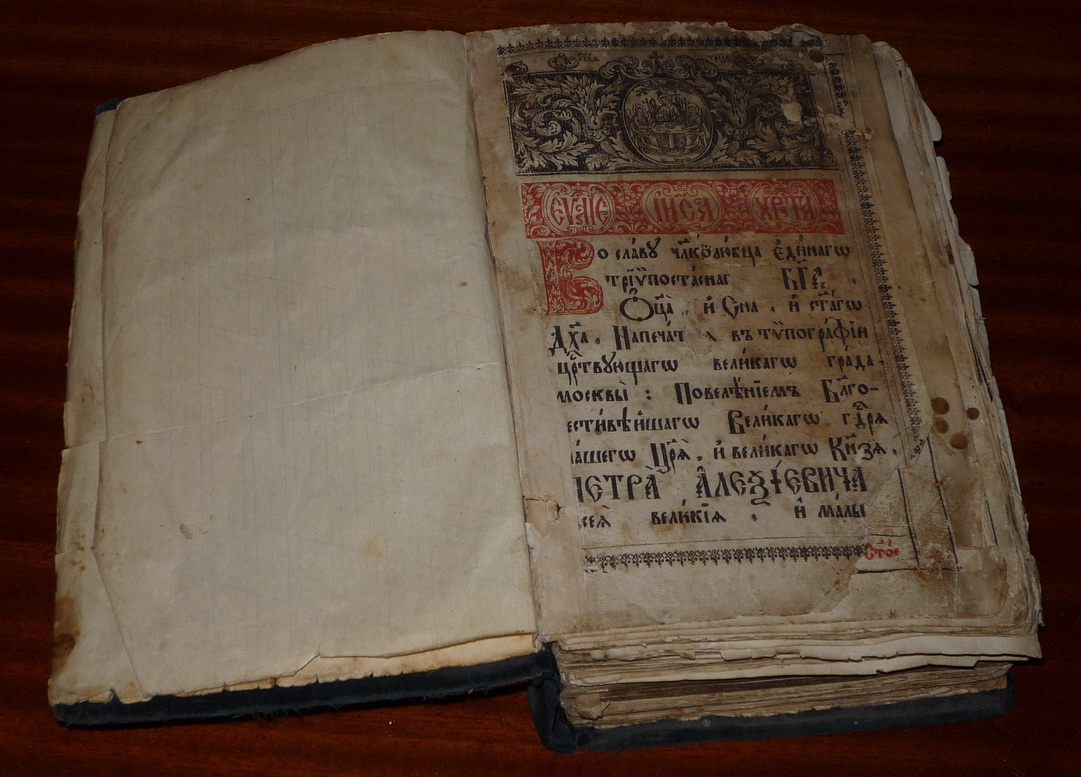 ЕѴ҃ЛІЕ ІИ҃СА ХР҃ТА
Во сла́вꙋ чл҃колю́бца єди́нагѡ
трїѷпоста́снаг БГ҃А
Ѻ҆ц҃а̀, и҆ Сн҃а, и҆ ст҃а́гѡ
Дх҃а. Напеча́т въ тѷпогра́фїи
црⷭ҇твꙋющагѡ вели́кагѡ гра́да
москвы̀: Повелѣ́нїемъ Бл҃го-
ести́вѣйшагѡ Вели́кагѡ гдⷭ҇рѧ
а́шегѡ Цр҃ѧ̀, и҆ вели́кагѡ Кн҃зѧ,
ПЕТРА̀ А҆ЛЕѮІ́ЕВИЧА
сеѧ̀ вели́кїѧ, и҆ ма́лы
Ст҃ое